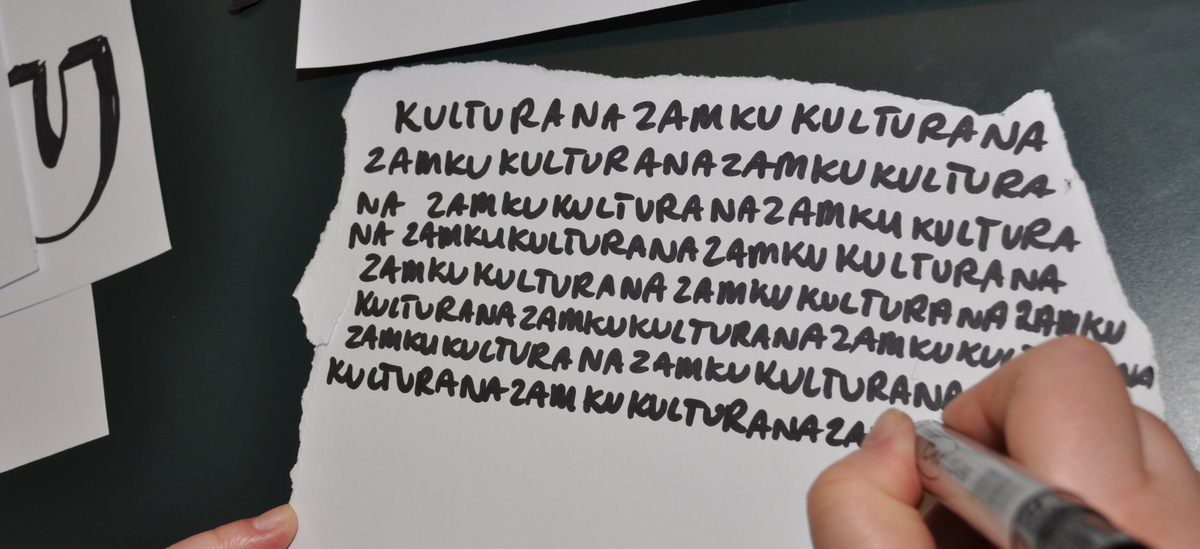 U
KULTURA NA ZAMKU KULTURA NA
ZAMKU KULTURA NA ZAMKU KULTURA
NA ZAMKU KULTURA NA ZAMKU KULTURA
NA ZAMKU KULTURA NA ZAMKU KULTURA NA
ZAMKU KULTURA NA ZAMKU KULTURA NA ZAMKU
KULTURA NA ZAMKU KULTURA NA ZAMKU NA
ZAMKU KULTURA NA ZAMKU KULTURA NA
KULTURA NA ZAMKU KULTURA NA ZA